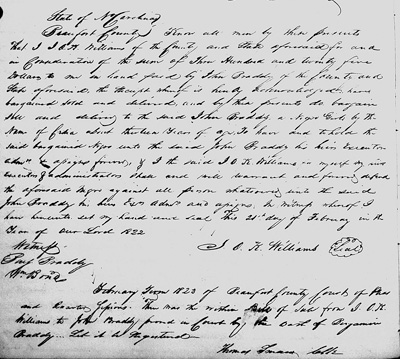 State of N Carolina
Beaufort County Know all men by these presents
that I J. O. K. Williams of the County and State aforesaid for and
in Consideration of the sum of Three Hundred and twenty five
Dollars to me in hand paid by John Braddy of the County and
State aforesaid, the receipt whereof is hereby acknowledged have
bargained sold and delivered, and by these presents do bargain
Sell and deliver to the said John Braddy, a Negro Girl by the
Name of about thirteen Years of age. To have and to hold the
said bargained Negro unto the said John Braddy his heirs Executors
adms & assigns forever, & I the said J O K Williams for myself my heirs
executors & administrators shall and will warrant and forever defend
the aforesaid Negro against all persons whatsoever unto the said
John Braddy his heirs Exrs Admrs and assigns. In Witness whereof I
have hereunto set my hand and seal this 21st day of February in the
Year of our Lord 1822
Witness J. O. K. Williams Seal
Benj Braddy
Wm Bond
February Term 1823 of Beaufort County Court of Pleas
and Quarter Sessions. Then was the within Bill of Sale from J. O. K.
Williams to John Braddy proved in Court by the Oath of Benjamin
Braddy. Let it be Registered
Thomas Clk